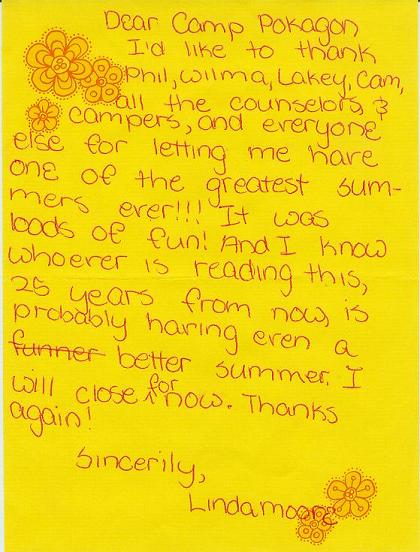 Dear Camp Pokagon
I'd like to thank
Phil, Wilma, Lakey, Cam,
all the counselors, &
campers, and everyone
else for letting me have
one of the greatest sum-
mers ever!!! It was
loads of fun! And I know
whoever is reading this,
25 years from now, is
probably having even a
funner better summer. I
will close for now. Thanks
again!
Sincerily,
Linda moore